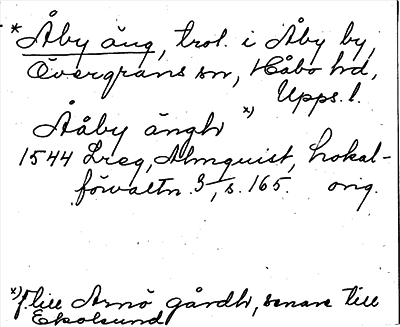 *Åby äng, trol. i Åby by,
Övergrans sn, Håbo hd,
Upps. l.
Ååby ängh x)
1544 Lreg, Almquist, Lokal-
förvaltn. 3, s. 165. orig.
x) f. till Arnö gårdh, senare till
Ekolsund